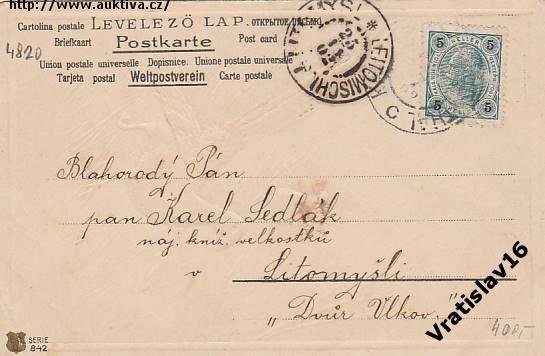 http://www.auktiva.cz/
Cartolina postale LEVELEZŐ LAP. ОТКРЫТОЕ ПИСЬМО
Briefkaart Postkarte Post card
Union postale universelle Dopisnice. Unione postale universale
Tarjeta postal Weltpostverein Carte postale
4820
LEITOMISCHL
5 5
HELLER
5 5
Blahorodý Pán,
pan Karel Sedlák
náj. kníž. velkostků
v Litomyšli
„Dvůr Vlkov."
Vratislav16
400,-
SERIE
842